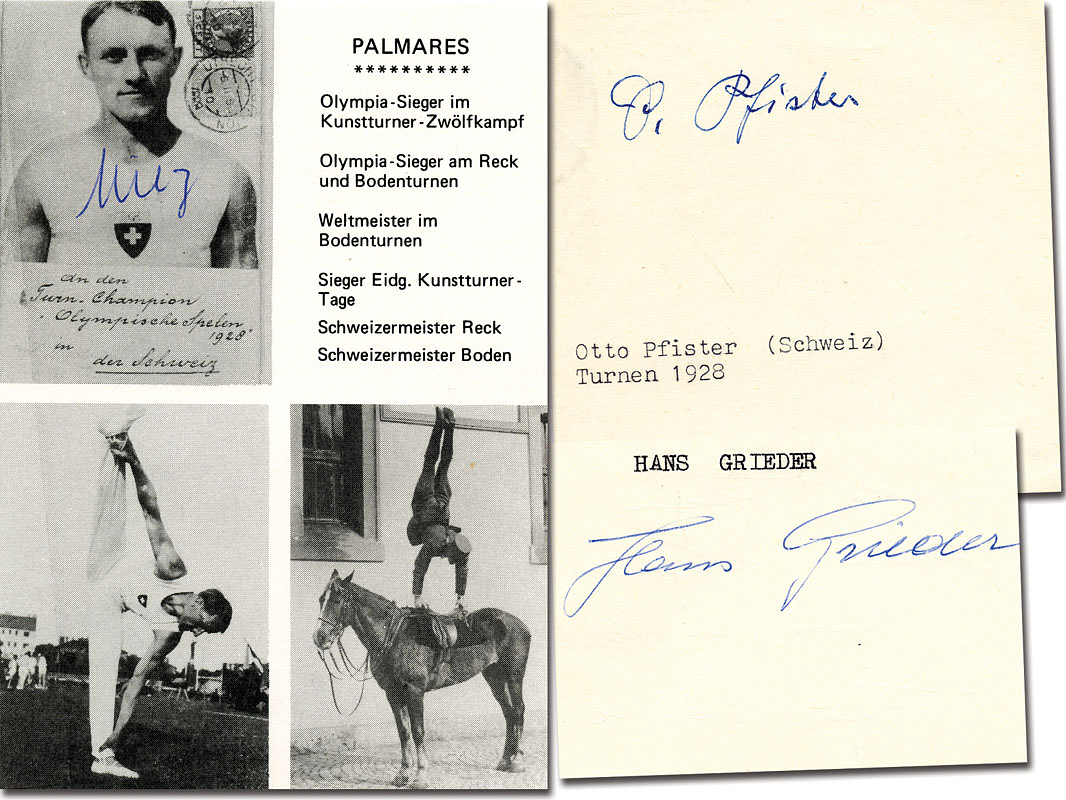 PALMARES
**********
Olympia-Sieger im
Kunstturner-Zwölfkampf
Olympia-Sieger am Reck
und Bodenturnen
Weltmeister im
Bodenturnen
Sieger Eidg. Kunstturner-
Tage
Schweizermeister Reck
Schweizermeister Boden
Miez
An den
Turn-Champion
"Olympische Spelen
1928"
in
der Schweiz
O. Pfister
Otto Pfister (Schweiz)
Turnen 1928
HANS GRIEDER
Hans Grieder